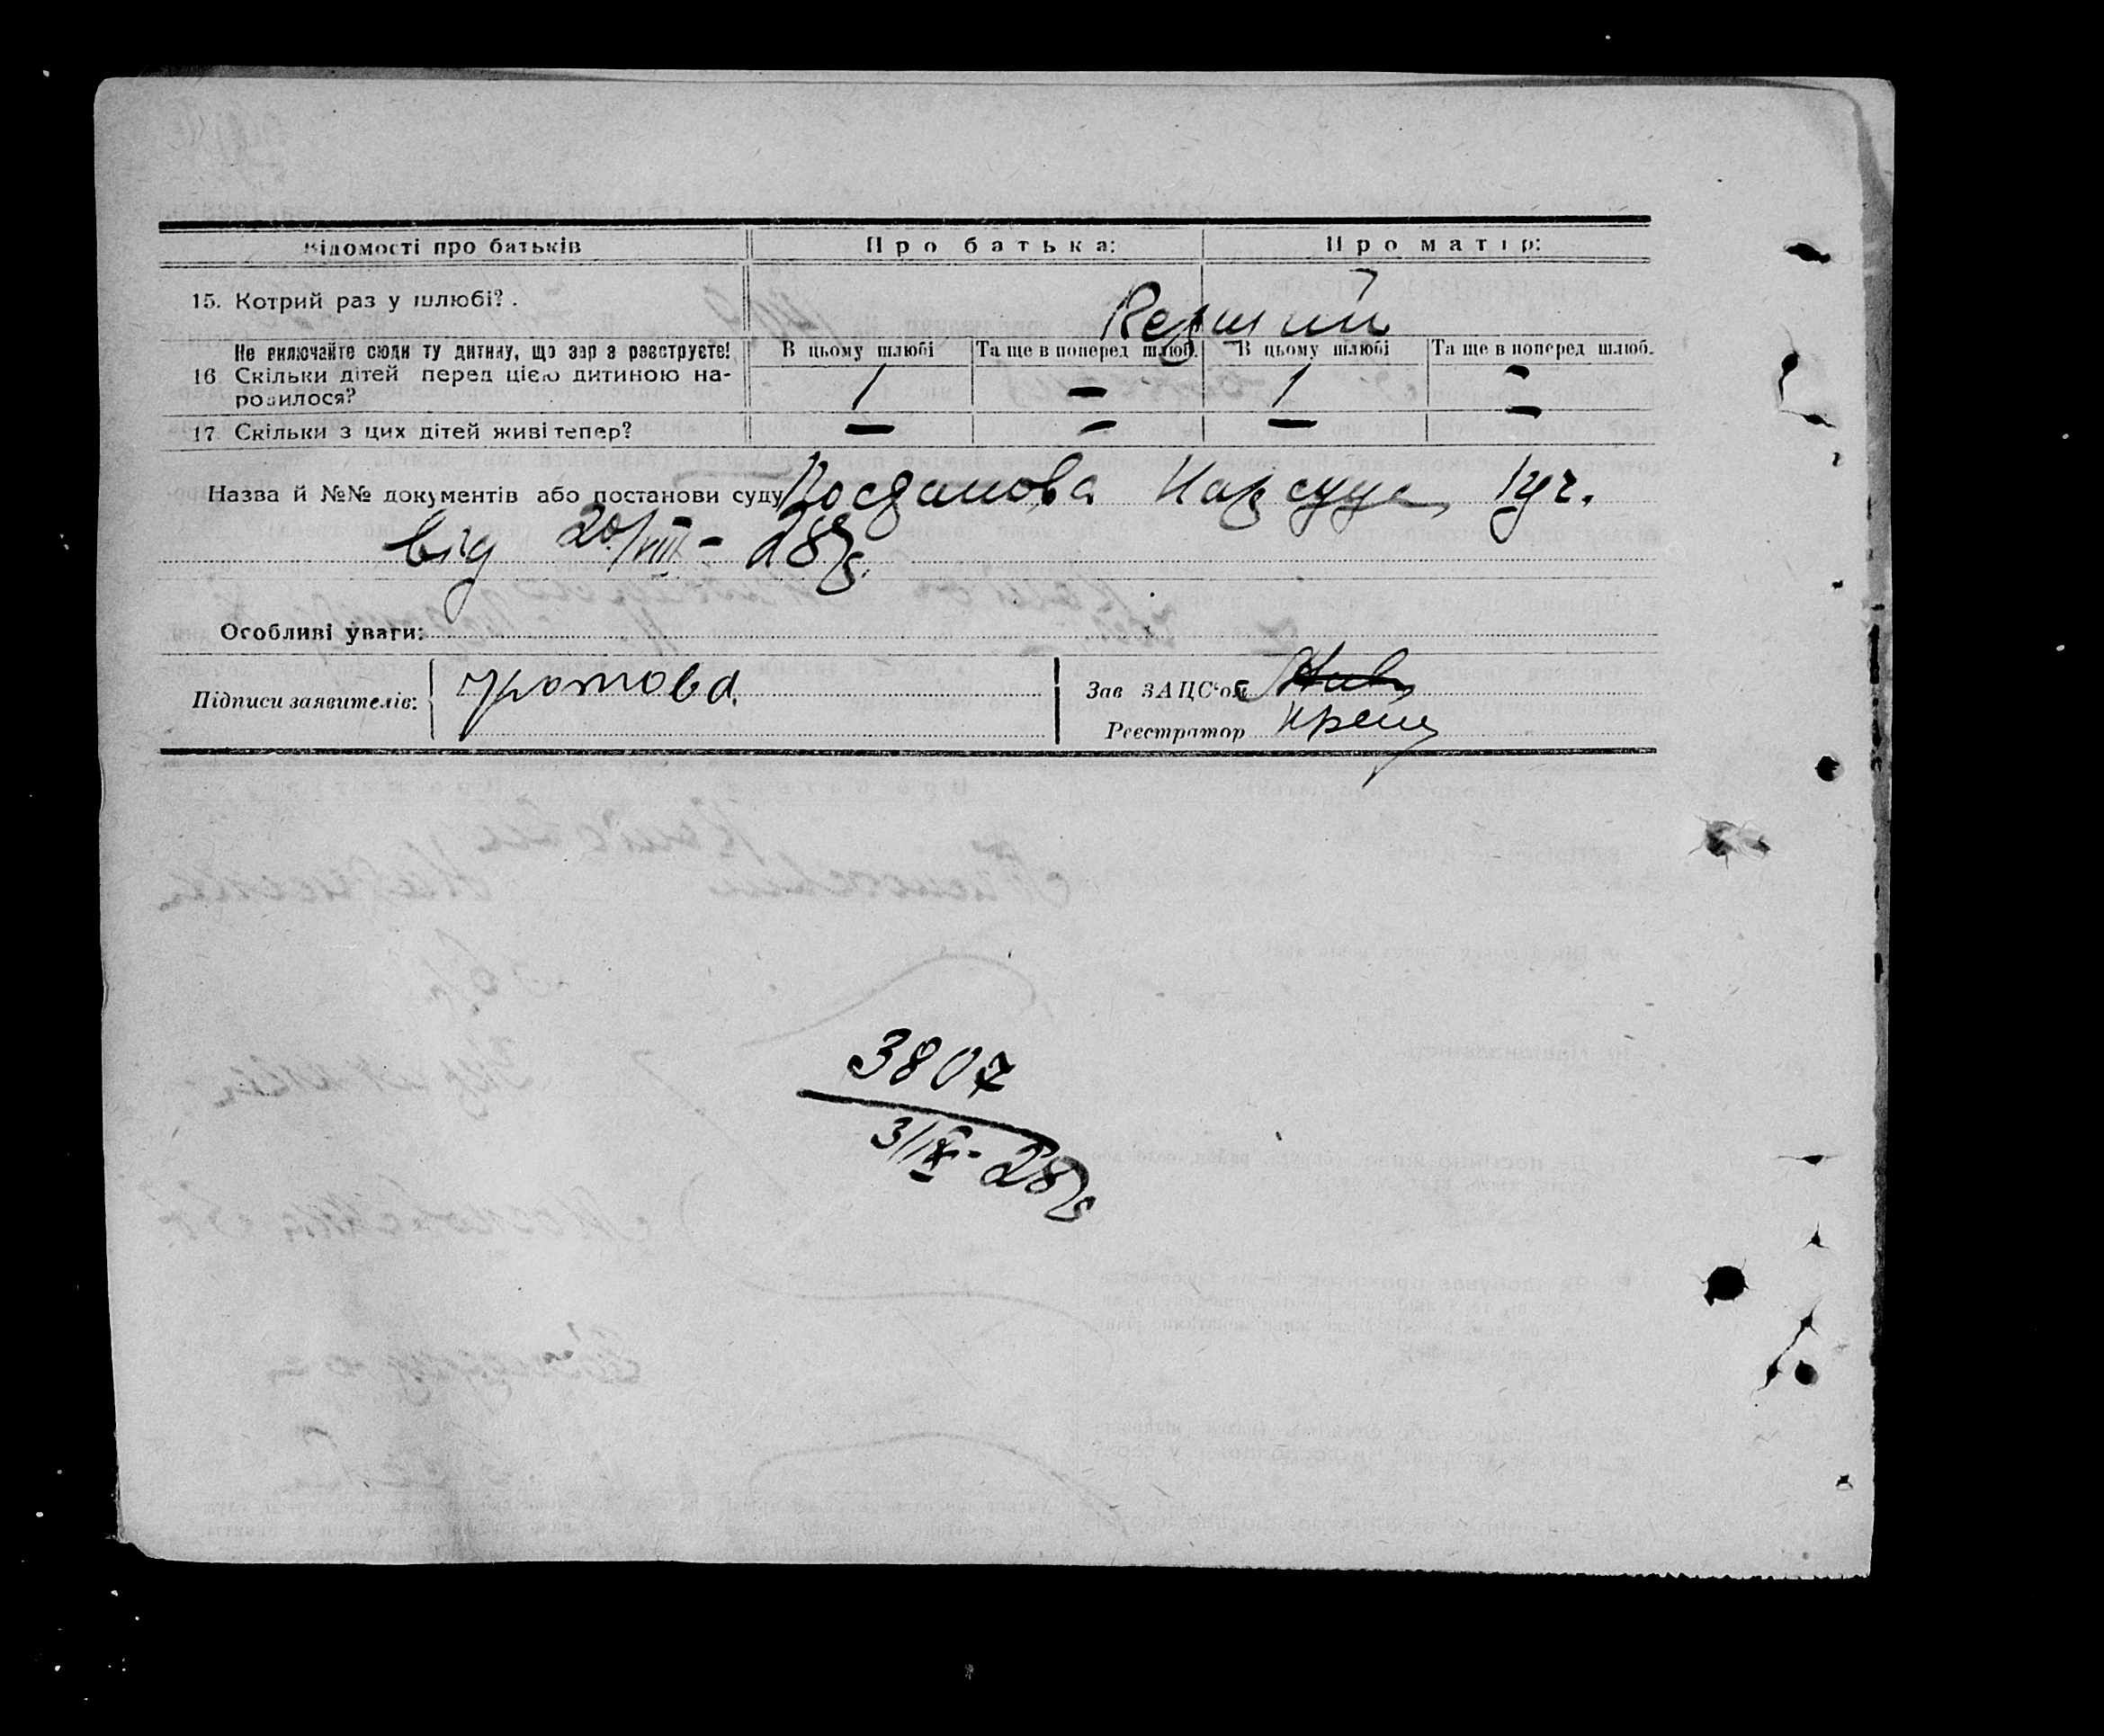 Відомості про батьків Про батька: Про матір:
15. Котрий раз у шлюбі? . Первий
Не включайте сюди ту дитину, що зараз реєструєте! В цьому шлюбі Та ще в поперед шлюб. В цьому шлюбі Та ще в поперед шлюб.
16 Скільки дітей перед цією дитиною на-
родилося? 1 — 1 —
17 Скільки з цих дітей живі тепер? — — — —
Назва й №№ документів або постанови суду Постанова Нарсуда 1 уч.
від 20/VIII - 28 р.
Особливі уваги:
Підписи заявителів: Зав ЗАЦС'ом
Реєстратор
3807
3/IX - 28 р